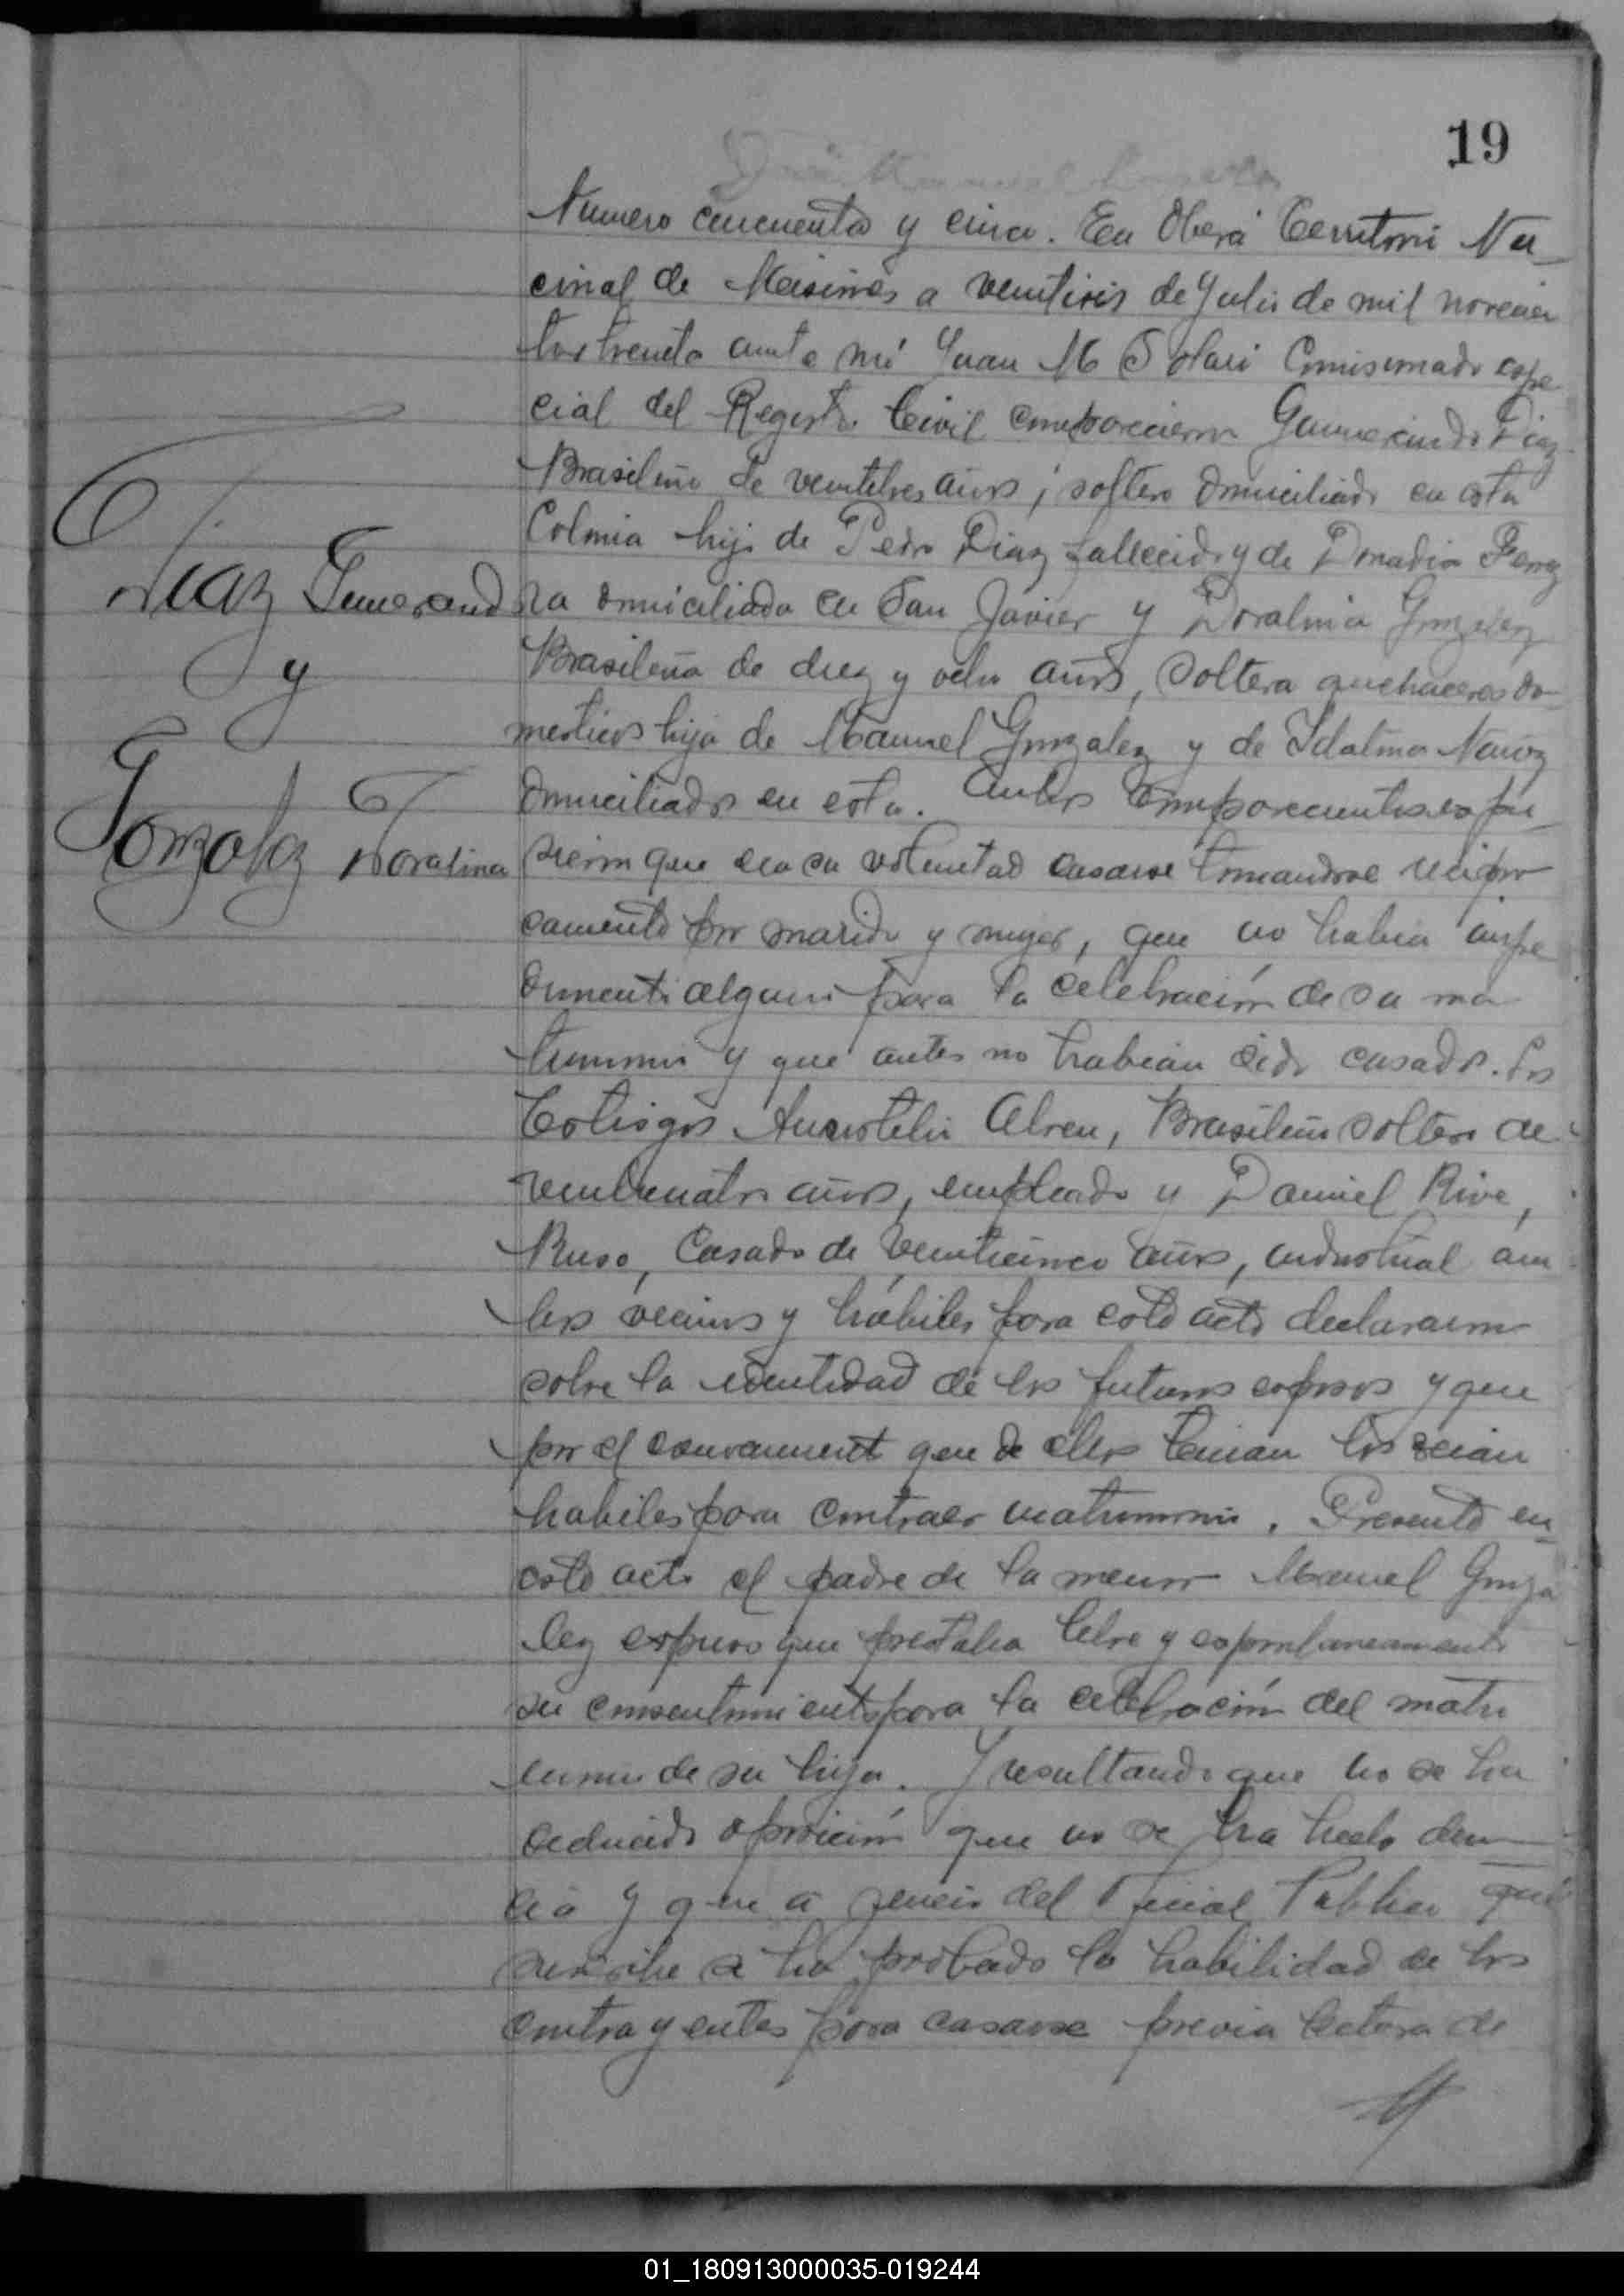 19
Numero cincuenta y cinco. En Oberá Territorio Na-
cional de Misiones a veintiseis de Julio de mil novecien
tos treinta ante mi Juan M Solari Comisionado espe
cial del Registro Civil comparecieron Gumercindo Diaz
Brasileño de veintitres años, soltero domiciliado en esta
Colonia hijo de Pedro Diaz fallecido y de
Diaz Gumercind
ra domiciliada en San Javier y Doralina Gonzalez
y
Brasileña de diez y ocho años, soltera quehaceres do-
mesticos hija de Manuel Gonzalez y de Idalina
Gonzalez Doralina
domiciliados en esta. Ambos comparecientes expu
sieron que era su voluntad casarse tomandose recipro
camente por marido y mujer, que no habia impe
dimento alguno para la celebración de su ma
trimonio y que antes no habian sido casados. Los
testigos Aristotelis Abreu, Brasileño soltero de
veinticuatro años, empleado y Daniel
Ruso, Casado de veinticinco años, industrial am
bos vecinos y hábiles para este acto declararon
sobre la identidad de los futuros esposos y que
por el conocimiento que de ellos tenian los creian
habiles para contraer matrimonio. Presente en
este acto el padre de la menor Manuel Gonza
lez expuso que prestaba libre y espontaneamente
su consentimiento para la celebración del matri
monio de su hija. Y resultando que no se ha
deducido oposición que no se ha hecho denun
cia y que a juicio del Oficial Publico que
suscribe se ha probado la habilidad de los
contrayentes para casarse previa lectura de
01_180913000035-019244